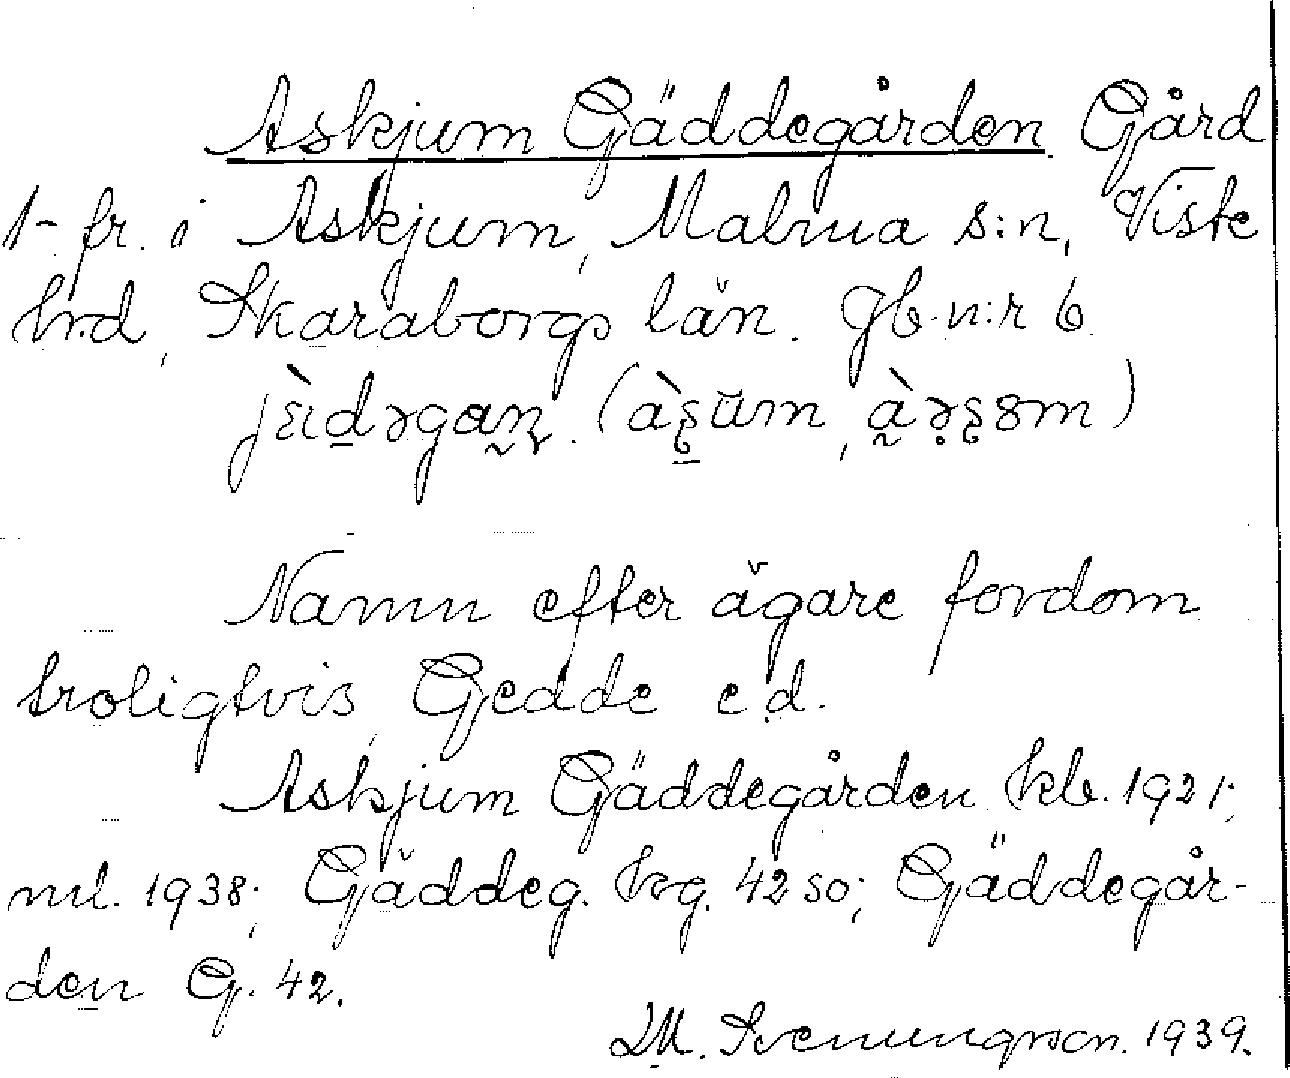 Askjum Gäddegården Gård
1- fr. i Askjum, Malma s:n, Viste
hrd, Skaraborgs län. Jb. n:r 6.
Namn efter ägare fordom
troligtvis, Gedde e.d.
Askjum Gäddegården kb. 1921;
ml. 1938; Gäddeg. krg. 42 so; Gäddegår-
den G. 42.
M. Svenungsson. 1939.